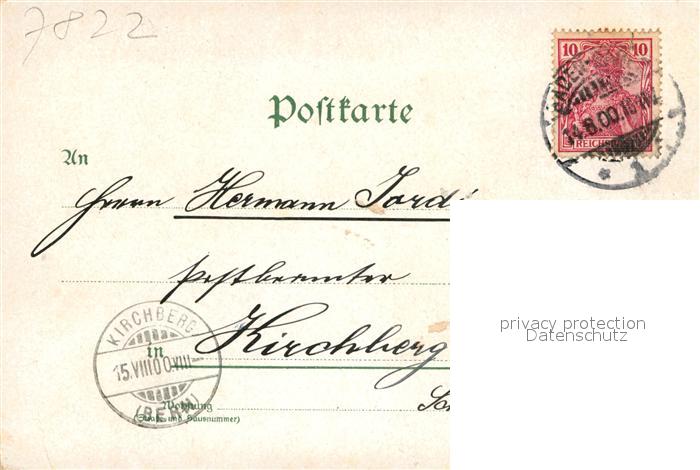 7822
10 10
REICHSPOST
14.8.00.
* 1
Postkarte
An
Herrn Hermann Jord
Postbeamter
KIRCHBERG
in Kirchberg
15.VIII00.VIII
(BERN)
Wohnung
(Straße und Hausnummer)
privacy protection
Datenschutz